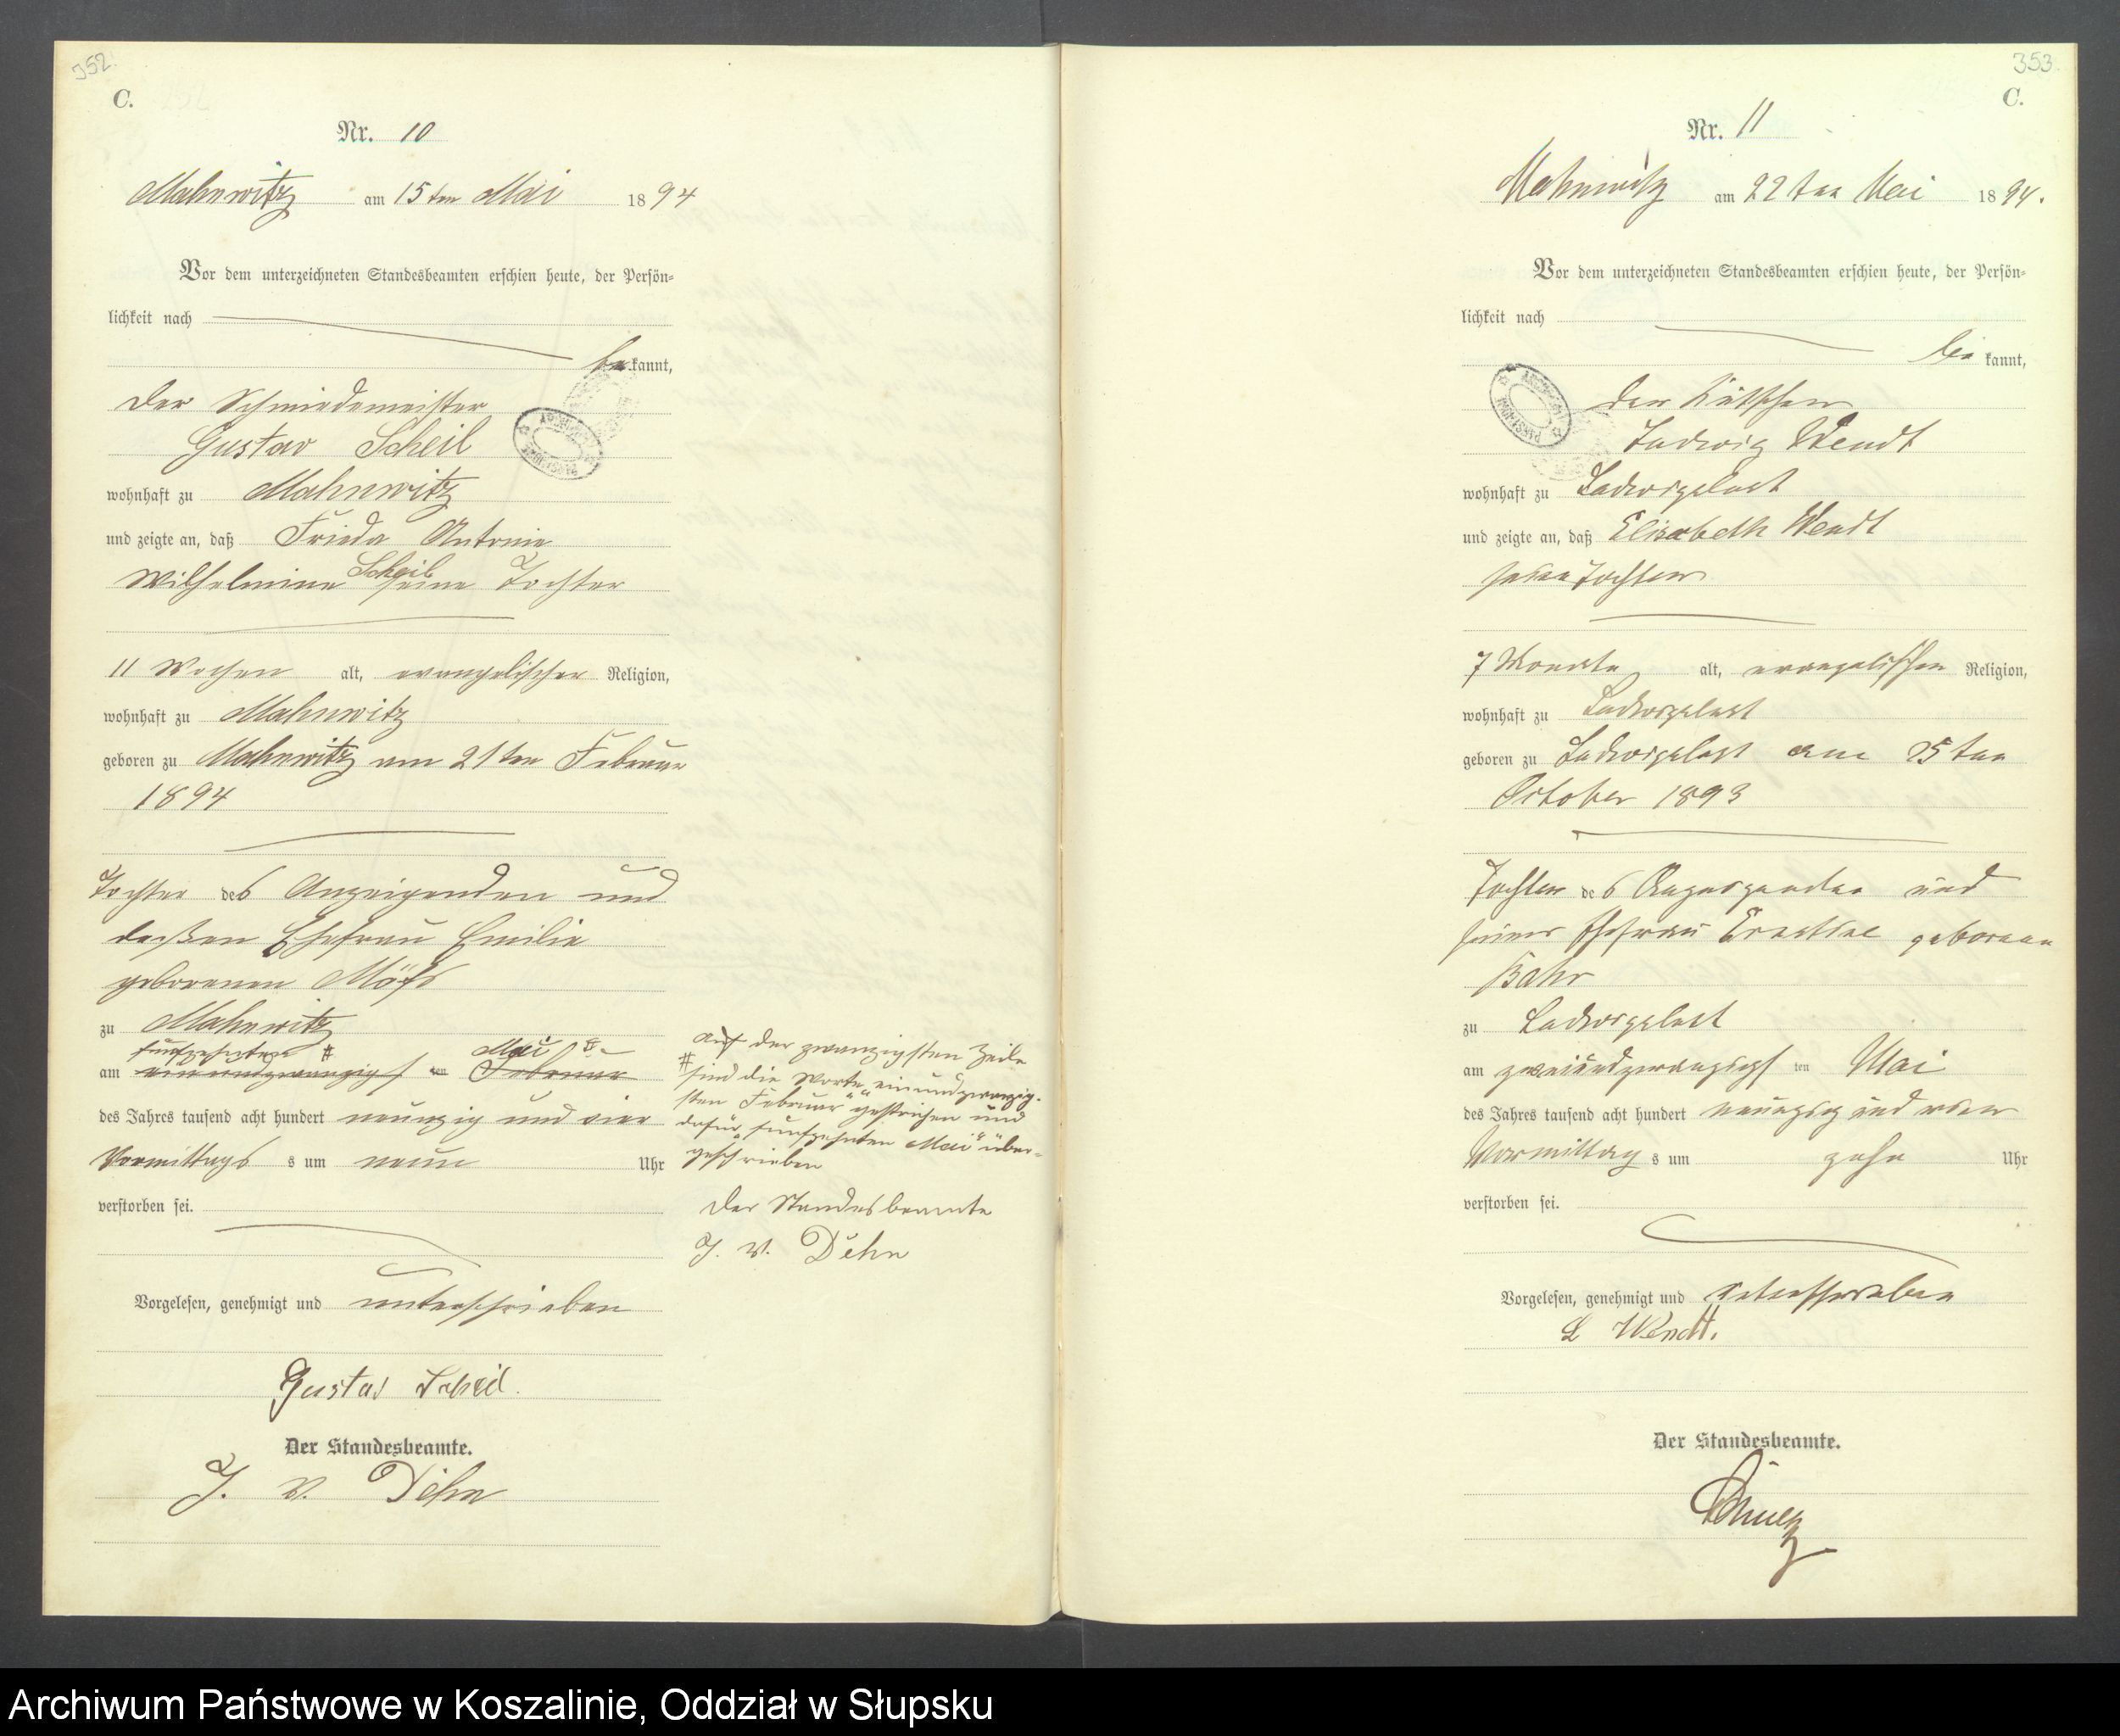 352.
C.
Nr. 10
Mahnwitz am 15ten Mai 1894
Vor dem unterzeichneten Standesbeamten erschien heute, der Persön-
lichkeit nach
be kannt,
der Schmiedemeister
Gustav Scheil
wohnhaft zu Mahnwitz
und zeigte an, daß Frieda Antonie
Scheil
Wilhelmine seine Tochter
11 Wochen alt, evangelischer Religion,
wohnhaft zu Mahnwitz
geboren zu Mahnwitz am 21ten Februar
1894
Tochter des Anzeigenden und
deßen Ehefrau Emilie
geborenen
zu Mahnwitz
fünfzehnten # Mai
am einundzwanzigsten Februar
des Jahres tausend acht hundert neunzig und vier
Vormittags s um neun Uhr
verstorben sei.
Vorgelesen, genehmigt und unterschrieben
Gustav Scheil.
Der Standesbeamte.
J. V. Dehn
auf der zwanzigsten Zeile
# sind die Worte „einundzwanzig-
sten Februar" gestrichen und
dafür „fünfzehnten Mai" über-
geschrieben
Der Standesbeamte
J. V. Dehn
353.
C.
Nr. 11
Mahnwitz am 22ten Mai 1894.
Vor dem unterzeichneten Standesbeamten erschien heute, der Persön-
lichkeit nach
be kannt,
der
Ludwig Wendt
wohnhaft zu Ludwigslust
und zeigte an, daß Elisabeth Wendt
seine Tochter
7 Monate alt, evangelischer Religion,
wohnhaft zu Ludwigslust
geboren zu Ludwigslust am 25ten
October 1893
Tochter des Anzeigenden und
seiner Ehefrau Ernstine geborenen
Bahr
zu Ludwigslust
am zweiundzwanzigs ten Mai
des Jahres tausend acht hundert neunzig und vier
Vormittag s um zehn Uhr
verstorben sei.
Vorgelesen, genehmigt und unterschrieben
L Wendt.
Der Standesbeamte.
Archiwum Państwowe w Koszalinie, Oddział w Słupsku